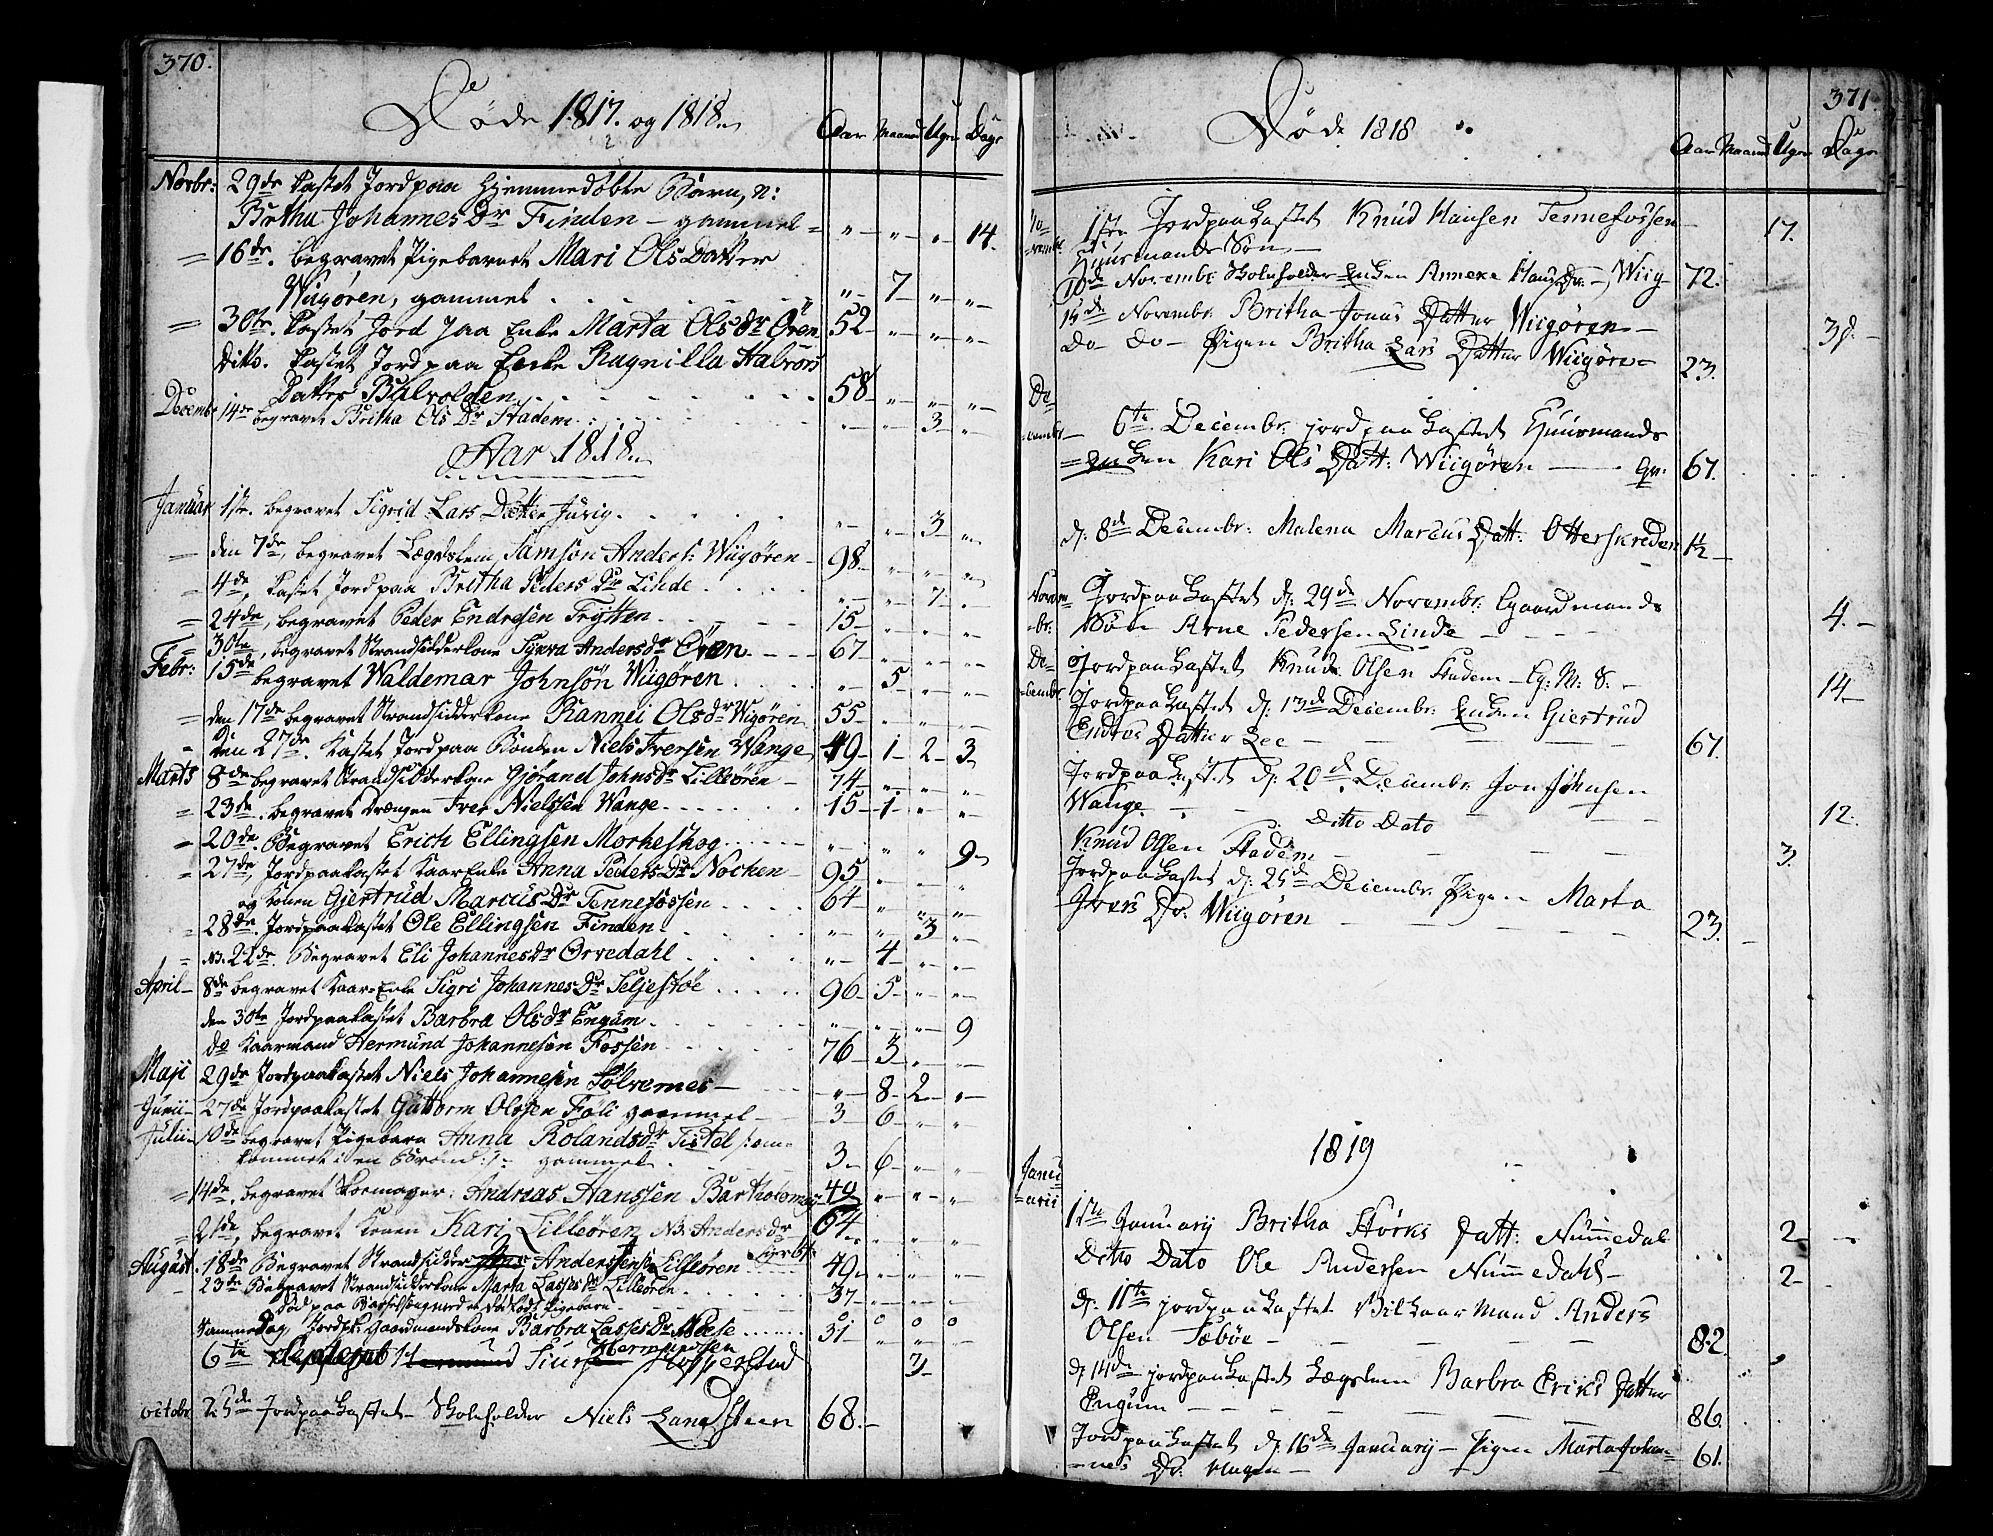 370.
Døde 1817. og 1818.
Aar Maaned Uger Dage
Novbr: 29de kastet Jord paa hjemmedøbte Børn, n:
Britha Johannes Dr Finden - gammel - " - " - " 14.
= 16de. begravet Pigebarnet Mari Ols Datter
Wiigøren, gammel . . . . . " - 7 - " - "
= 30te. kastet Jord paa Enke Marta Olsdr Øren 52 - " - " - "
Dito. kastet Jord paa Enke Ragnilla Halvors
Datter Bulvolden . . . . 58 - " - " - "
Decembr 14de begravet Britha Ols Dr Stadem . . . " - " - 3 - "
Aar 1818.
Januar 1ste. begravet Sigrid Lars Datter . . . " - " - 3 - "
- den 7de, begravet Lægdslem Samson Anders: Wiigøren - 98 - " - " - "
= 4de, kastet Jord paa Britha Peders Dr Linde . . . " - " - 7 - "
= 24de, begravet Peder Endresen Frytten . . . 15 - " - " - "
= 30te, begravet Strandsidderkone Synva Andersdr Øren - - - 67 - " - " - "
Febr: 15de begravet Waldemar Johnsøn Wiigøren . . . " - 5 - " - "
= den 17de begravet Strandsidderkone Rannei Olsdr Wigøren 55 - " - " - "
- den 27de. kastet Jord paa Bonden Niels Iversen Wange 49 - 1 - 2 - 3
Marts 8de begravet Strandsidderkone Gjørand Johnsdr Lilleøren - 74 - " - " - "
= 23de. begravet Drengen Iver Nielssen Wange . . . 15 - 1 - " - "
= 20de. Begravet Erich Ellingsen Morkeskog . . . " - " - " 9 -
= 27de, Jordpaakastet KaarEnke Anna Peders Dr Nocken - 95 - " - " - "
og Konen Gjertrud Marcus Dr Tennefossen . . . 64 - " - " - "
= 28de. Jordpaakastet Ole Ellingsen Finden . . . " - " 3 - "
= NB. 22de. Begravet Eli Johannesdr Orvedahl . . . " - 4 - " - "
April - 8de begravet Kaar-Enke Sigri Johannes Dr Seljestøe . . . 96 - 5 - " - "
den 30te Jordpaakastet Barbra Olsdr Engum . . . " - " - " 9
do Kaarmand Hermund Johannesøn Fossen . . . 76 - 3 - " - "
Maji 29de Jordpaakastet Niels Johannesøn Sølvernes - " - 8 - 2 - "
Junii - 27de Jordpaakastet Guttorm Olssen Føli gammel - 3 - 6 - " - "
Julii - 10de begravet Pigebarn Anna Rolandsdr Tistel /: om-
kommet i en Brønd :/ - gammel . . . 3 - 6 - " - "
= 14de. begravet Skomager: Andreas Hanssen Bartholomæ 49 - " - " - "
= 21de, begravet Konen Kari Lilleøren NB: Andersdr 64 - " - " - "
August. 18de Begravet Strandsidder Anderssen Lilleøren 49 - " - " - "
- 23de Begravet Strandsidderkone Marta Lasses Dr Lilleøren . . . 37 - " - " - "
død paa Barselseng med et dødfødt Pigebarn - - - 0 0 0 0
samme Dag, Jordpk: Gaardmandskone Barbra Lasses Dr Næse . . . 31 - " - " - "
6te Septemb Hermund Siur Hermundsen Hopperstad 3 -
Octobr 25de Jordpaakastet Skoleholder Niels Landsteen 68. -
371.
Døde 1818
Aar Maaned Uger Dage
No-
vembr. 1ste Jordpaakastet Knud Hansen Tennefossen - 17.
Huusmands Søn -
10de Novembr. Skoleholder Enken Anneke Hans Dr. - Wiig - 72.
15de Novembr Britha Jonas Datter Wiigøren -
Do - Do - Pigen Britha Lars Datter Wiigøren - 23.
De-
cembr - 6te. Decembr. jordpaakastet Huusmands
= enken Kari Ols Datt: Wiigøren - - - gl: 67.
d. 8de Decembr: Malena Marcus Datt: Otterskreden 1½ -
Novem-
br: Jordpaakastet d. 29de Novembr: Gaardmands
Søn Arne Pedersen Linde - - - 4. -
De-
cembr Jordpaakastet Knud Olsen Stadem - G: M: S: - 14 -
Jordpaakastet d. 13de Decembr. Enken Giertrud
Endres Datter Lee - - - 67.
Jordpaakastet d. 20de Decembr. Jon Johnsen
Wange - - - 12.
Ditto Dato
Knud Olsen Stadem - - - 3.
Jordpaakastet d. 25de Decembr. Pigen Marta
Ivers Dr. Wiigøren - - - 23.
1819
Janu-
arii
1ste January Britha Størks Datt: Nummedal 2 -
Ditto Dato Ole Andersen Nummedahl - 2 -
d. 11te jordpaakastet Vilkaarmand Anders
Olsen Sæbøe - - - 82
d. 14de jordpaakastet Lægslem Barbra Eriks Datter
Engum - - - 86.
Jordpaakastet d. 16de January - Pigen Marta Johan-
-nes Dr. - 61.